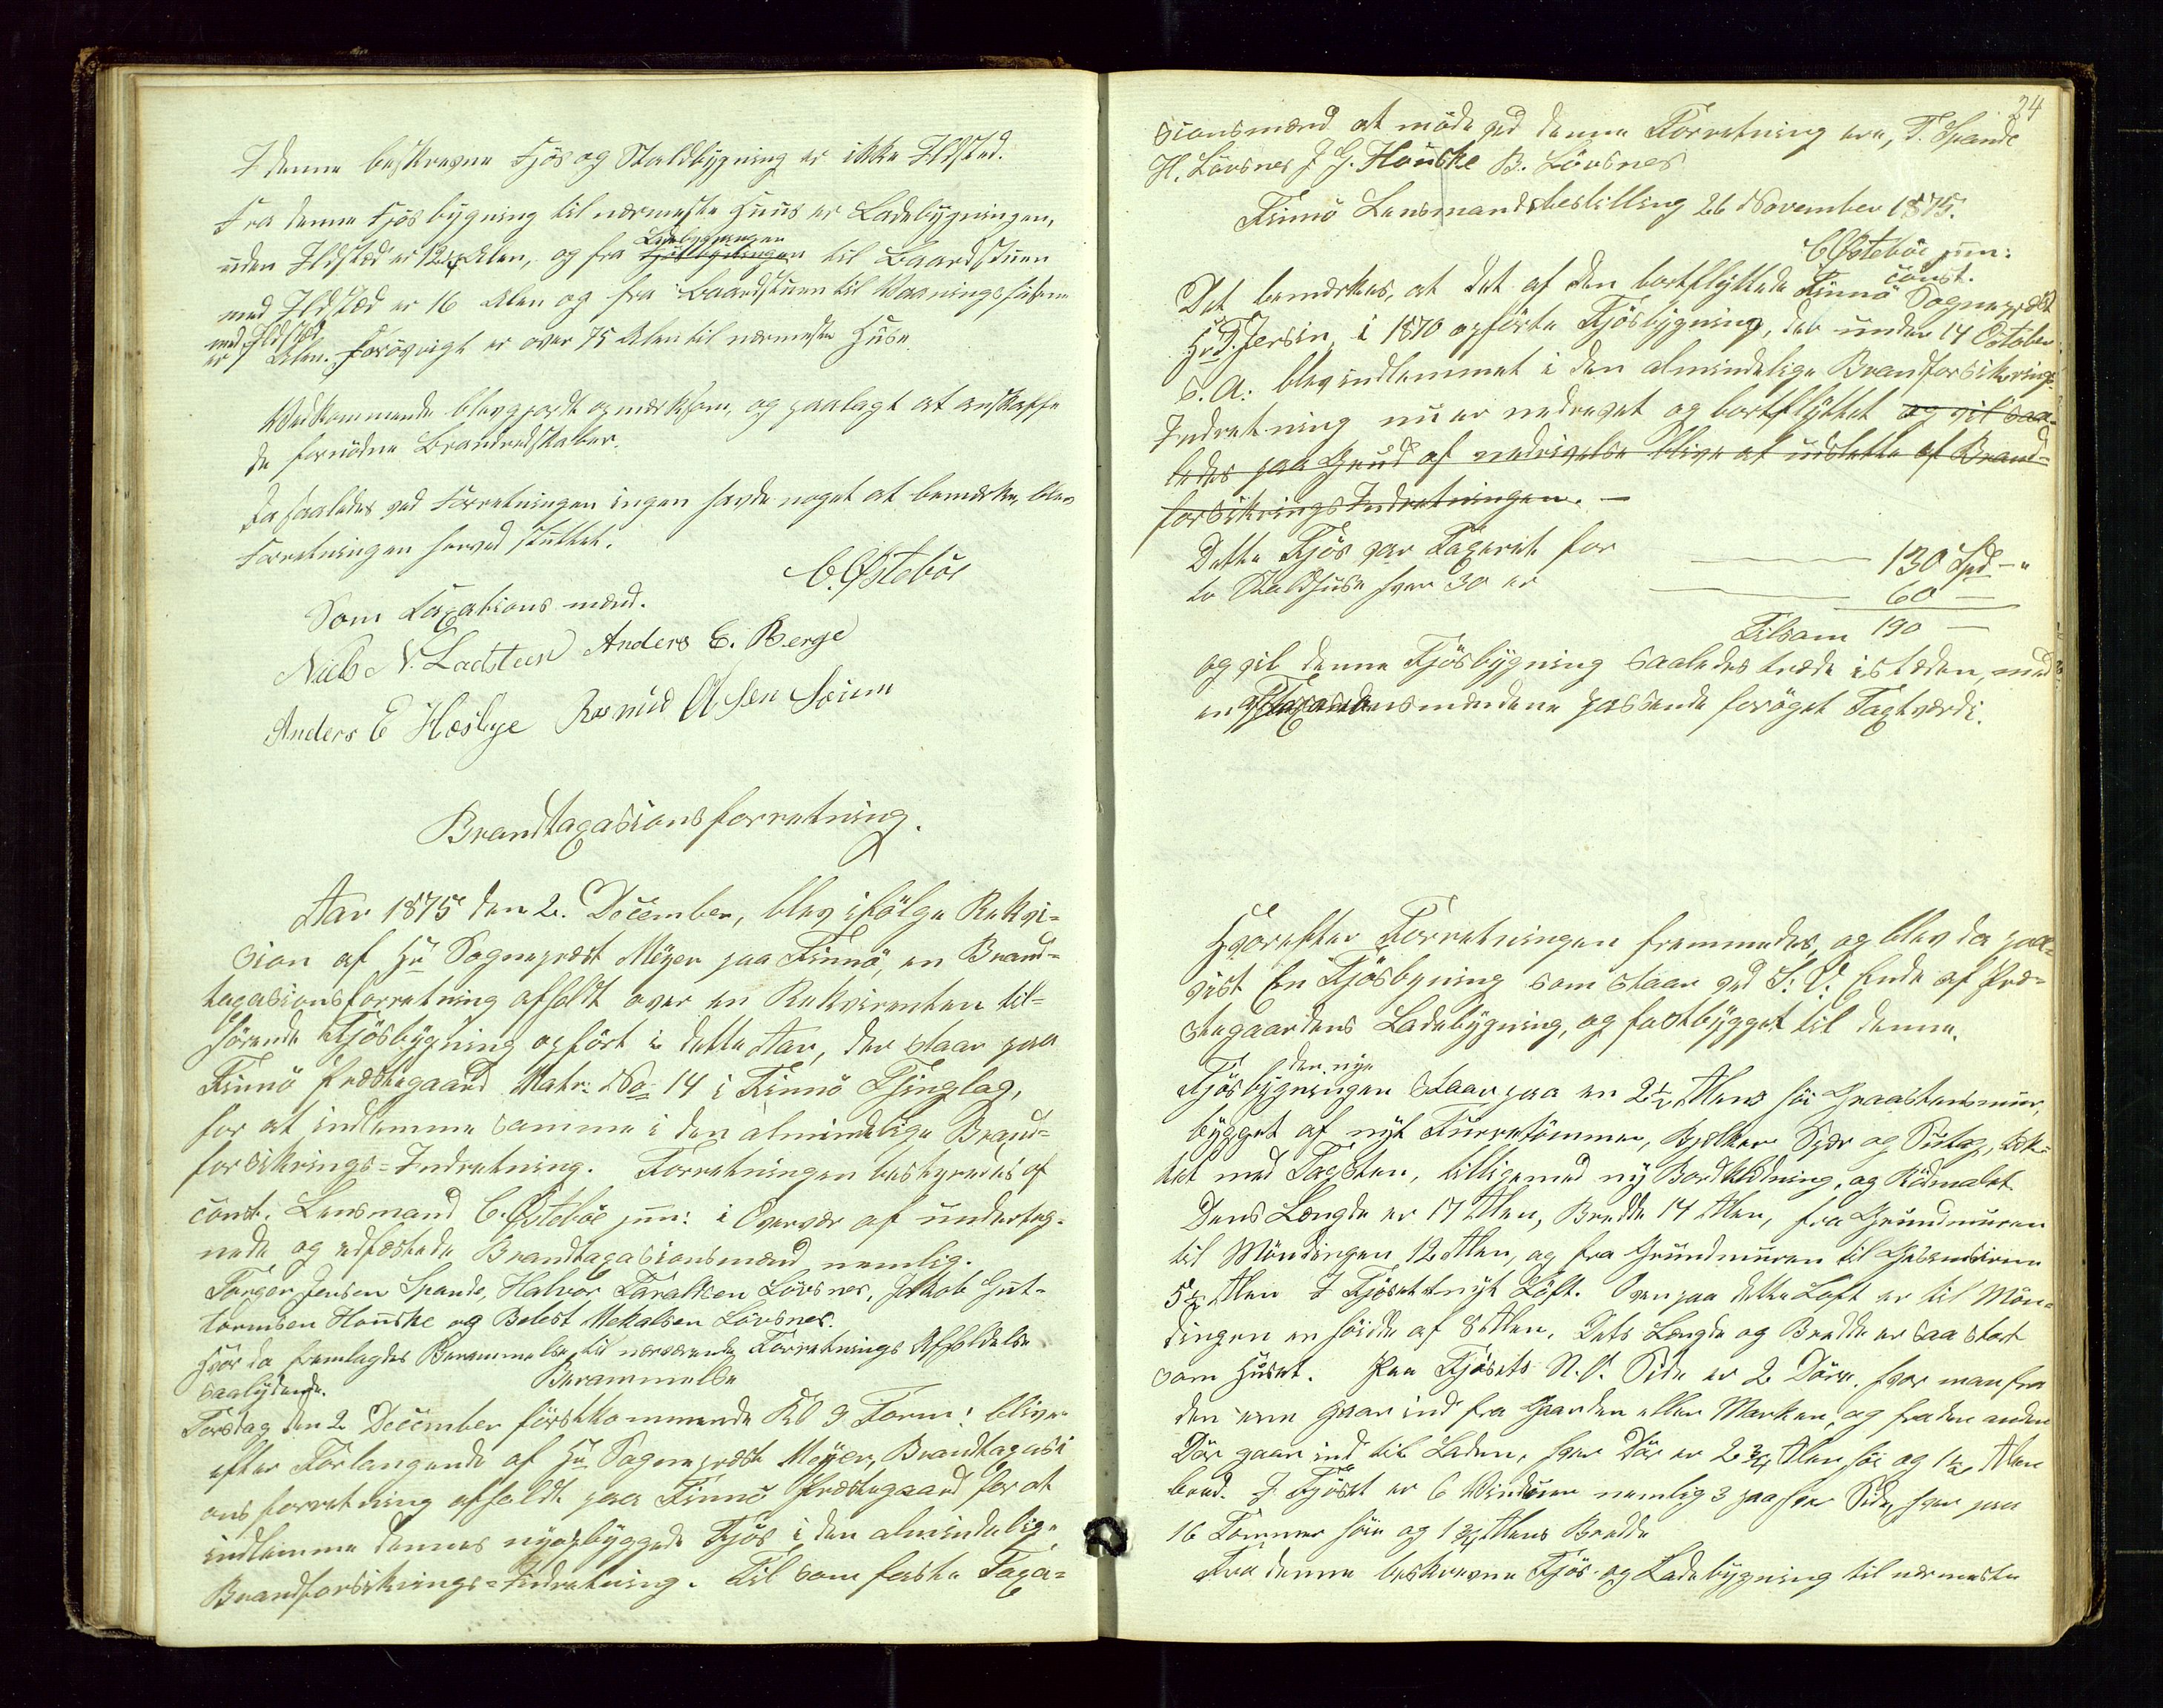 I denne beskrevne Fjös og Staldbygning er ikke Ildsted.
Fra denne Fjösbygning til nærmeste Huus er Ladebygningen,
uden Ildsted er 12 1/4 Alen, og fra Fjösbygningen Ladebygningen til Baardstuen
med Ildsted er 16 Alen og fra Baardstuen til Vaaningshusene
med Ildsted
er Alen. Forövrigt er over 75 Alen til nærmeste Huse.
Vedkommende blev gjordt opmærksom, og paalagt at anskaffe
de fornödne Brandredskaber.
Da saaledes ved Forretningen ingen havde noget at bemærke, blev
Forretningen herved sluttet.
C. Østeböe
Som Taxations mænd.
Niels N. Ladsteen Anders E. Berge
Anders E Hæsbye Rasmus Olsen Soium
Brandtaxasionsforretning.
Aar 1875 den 2. December, blev ifölge Rekvi-
sion af Hr Sogneprest Meÿer paa Finnö, en Brand-
taxasionsforretning afholdt over en Rekvirenten til-
hörende Fjösbygning opfört i dette Aar, der staar paa
Finnö Præstegaard Matr: No 14 i Finnö Thinglag,
for at indlemme samme i den almindelige Brand-
forsikrings-Indretning. Forretningen bestyredes af
const. Lensmand C. Østeböe jun: i Overvær af underteg-
nede og edfæstede Brandtaxasionsmænd nemlig.
Torger Jensen Spande, Halvor Taraldsen Lövsnes, Jakob Gut-
tormsen Houske og Belest Mekalsen Lövsnes.
Hvor da fremlagdes Berammelse til nærværende Forretnings Afholdelse
saalydende. Berammelse
Torsdag den 2 December förstkommende Kl 9 Form: bliver
efter Forlangende af Hr Sogneprest Meÿer, Brandtaxasi
onsforretning afholdt paa Finnö Præstegaard for at
indlemme dennes nyopbyggede Fjös i den almindelige
Brandforsikrings-Indretning. Til som faste Taxa-
24
sionsmænd at möde ved denne Forretning ere, T. Spande
H. Lövsnes J. G. Houske B. Lövsnes
Finnö Lensmandsbestilling 26 November 1875.
C Østeböe jun:
const.
Det bemærkes, at det af den bortflyttede Finnö Sogneprest
Hr D. Jersin i 1870 opförte Fjösbygning, der under 14 October
s. A. blev indlemmet i den almindelige Brandforsikrings-
Indretning nu er nedrevet og bortflyttet og vil saa-
ledes paa Grund af nedrivelse blive at udslette af Brand-
forsikringsIndretningen. —
Dette Fjös var Taxeret for 130 Spd - "
to Staldhuse hver 30 er 60 —
Tilsam 190 —
og vil denne Fjösbygning saaledes træde isteden, med
en af Taxasionsmændene passende foröget Taxtværdi.
Hvorefter Forretningen fremmedes, og blev da paa-
vist En Fjösbyning som staar ved S. V. Ende af Præ-
stegaardens Ladebygning, og fastbygget til denne.
den nye
Fjösbygningen Staar paa en 2 1/2 Alens höi Graastensmur,
bygget af nyt Furretömmer, Bjelker Spær og Sutag, tæk-
ket med Tagsten, tilligemed ny Bordklædning, og Rödmalet.
Dens Længde er 17 Alen, Bredde 14 Alen, fra Grundmuren
til Möndingen 12 Alen, og fra Grundmuren til Gesemsen
5 1/2 Alen I Fjöset et nyt Löft. Oven paa dette Loft er til Mön-
dingen en höide af 8 Alen. Dets Længde og Bredde er saa stort
som Huset. Paa Fjösets N. V. Side er 2 Döre, hvor man fra
den ene gaar ind fra Gaarden eller Marken, og fra den anden
Dör gaar ind til Laden, hver Dör er 2 3/4 Alen höi og 1 1/2 Alen
bred. I Fjöset er 6 Vinduer nemlig 3 paa hver Side, hver paa
16 Tommer höie og 1 3/4 Alens Bredde
Fra denne beskrevne Fjös og Ladebygning til nærmeste